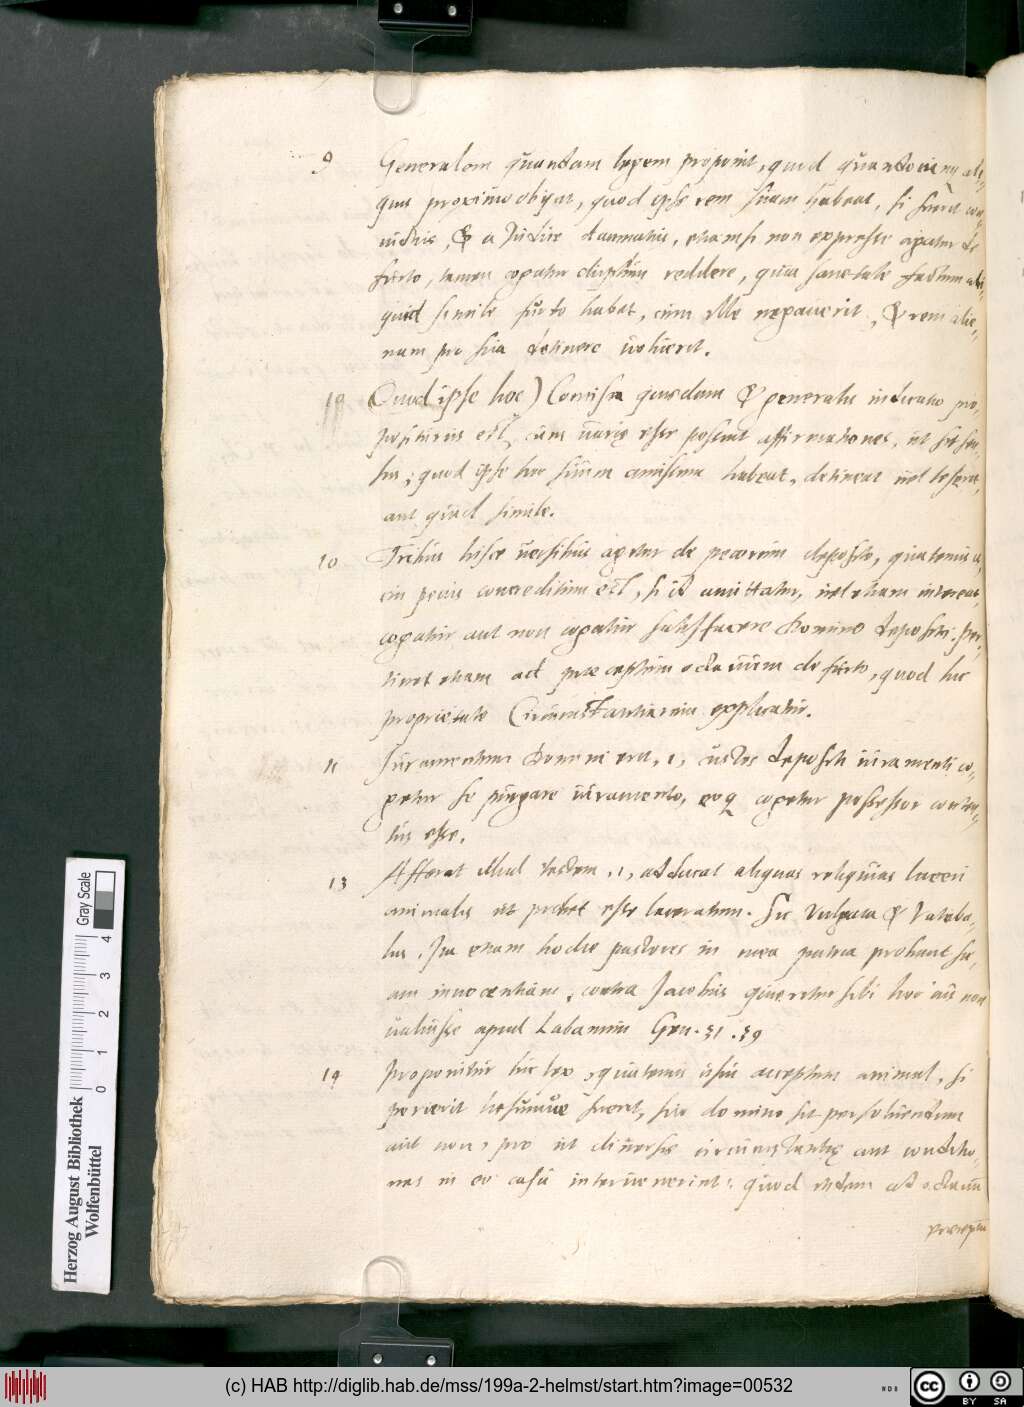 9 Generalem quandam legem proponit, quod quandocunq ali-
quis proximo obijciat, quod ipse rem suam habeat, si fuerit con-
uictus, & a Iudice damnatus, etiamsi non expresse agatur de
furto, tamen cogatur duplum reddere, quia sane tale factum ali-
quid simile furto habet, cum ille negauerit, & rem alie-
nam pro sua detinere uoluerit.
10 Quod ipse hoc) Concisa quaedam & generalis indicatio pro-
positurus est, cum uarie esse possint affirmationes, ut sit sen-
sus, quod ipse hoc suum amissum habeat, detineat uel leserit,
aut quid simile.
10 Tribus hisce uersibus agetur de pecorum deposito, quatenus a-
cui pecus concreditum est, si id amittatur, uel etiam intereat,
cogatur aut non cogatur satisfacere Domino depositi. per-
tinet etiam ad praeceptum octauum de furto, quod hic
proprietate Circumstantiarum explicatur.
11 Iuramentum Domini erit, .i. custos depositi iuramenti co-
getur se purgare iuramento, eoq cogetur possessor conten-
tus esse.
13 Afferat illud testem, .i. adducat aliquas reliquias laceri
animalis ut probet esse laceratum. Sic Vulgata & Vatab-
lus. Ita etiam hodie pastores in mea patria probant su-
am innocentiam, contra Jacobus queretur sibi hoc non
ualuisse apud Labanum Gen. 31. 39
14 Proponitur hic lex, quatenus usu acceptum animal, si
perierit lesumue fuerit, sit domino sit persoluendum
aut non, pro ut diuersae circumstantiae aut conditio-
nes in eo casu interuenerint: quod etiam ad octauum
praeceptum
Herzog August Bibliothek
Wolfenbüttel
0 1 2 3 4
Gray Scale
(c) HAB http://diglib.hab.de/mss/199a-2-helmst/start.htm?image=00532
cc BY SA